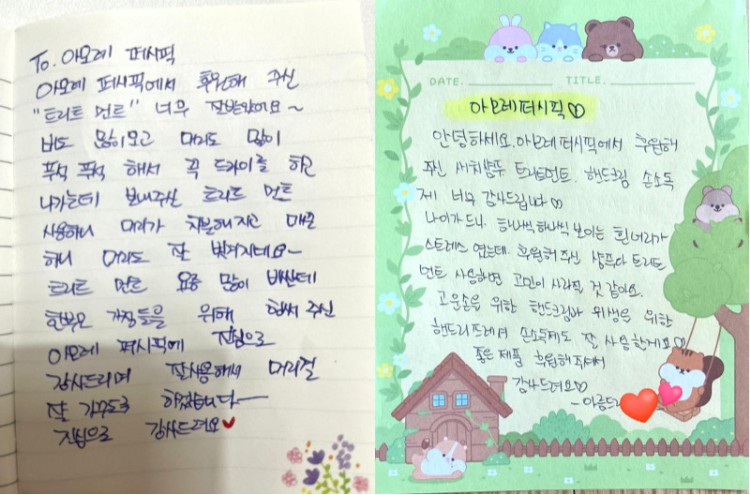 To. 아모레 퍼시픽
아모레 퍼시픽에서 후원해 주신
"트리트 먼트" 너무 잘받았어요~
비도 많이오고 머리도 많이
푸석 푸석 해서 꼭 드라이를 하고
나가는데 보내주신 트리트 먼트
사용하니 머리가 차분해 지고 매끈
하니 머리도 잘 빗겨지네요~
트리트 먼트 요즘 많이 비싼데
한부모 가정들을 위해 힘써 주신
아모레 퍼시픽에 진심으로
감사드리며 잘사용해서 머릿결
잘 가꾸도록 하겠습니다
진심으로 감사드려요♥
DATE. TITLE.
아모레퍼시픽♡
안녕하세요. 아모레 퍼시픽에서 후원해
주신 샴푸 트리트먼트. 핸드크림 손소독
제 너무 감사드립니다♡
나이가 드니. 하나씩하나씩 보이는 흰머리가
스트레스 였는데. 후원해 주신 샴푸와 트리트
먼트 사용하면 고민이 사라질 것 같아요.
고운손을 위한 핸드크림과 위생을 위한
손소독제도 잘 사용할게요♡
좋은 제품 후원해 주셔서
감사드려요♡